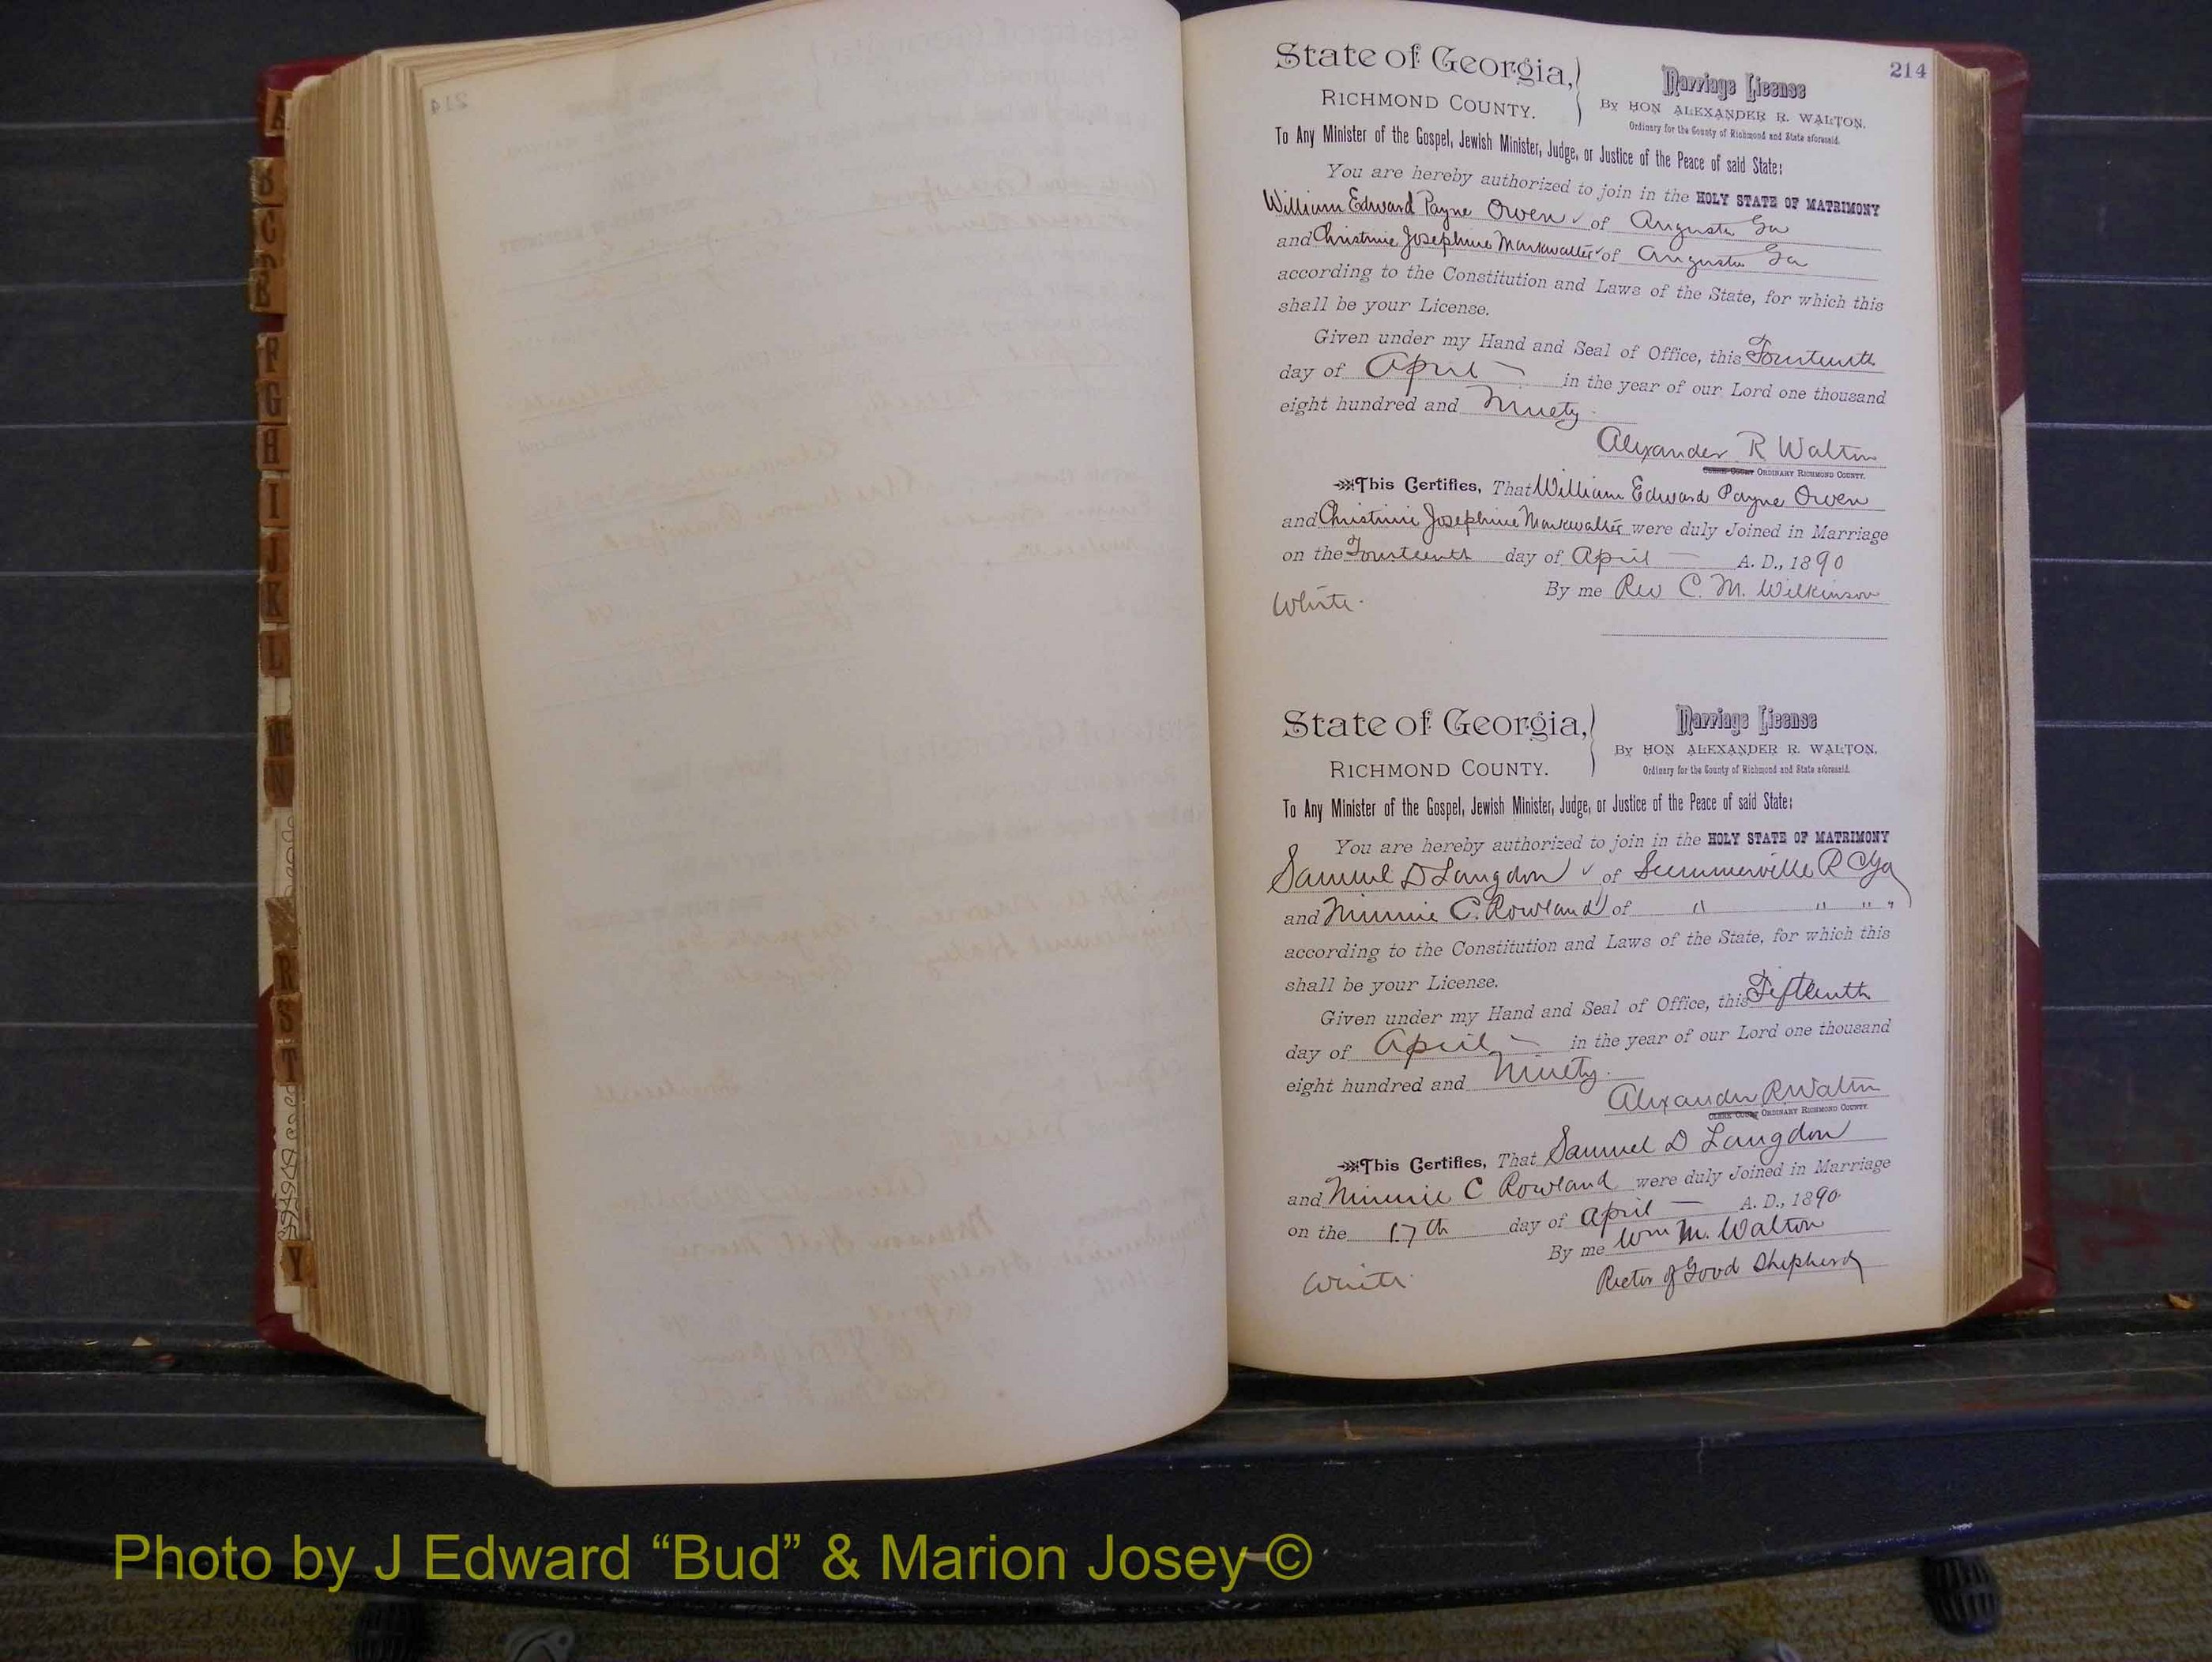 214
State of Georgia,
RICHMOND COUNTY.
Marriage License
By HON ALEXANDER R. WALTON.
Ordinary for the County of Richmond and State aforesaid.
To Any Minister of the Gospel, Jewish Minister, Judge, or Justice of the Peace of said State:
You are hereby authorized to join in the HOLY STATE OF MATRIMONY
William Edward Payne Owen of Augusta Ga
and Christinie Josephine Markwalter of Augusta Ga
according to the Constitution and Laws of the State, for which this
shall be your License.
Given under my Hand and Seal of Office, this Fourteenth
day of April in the year of our Lord one thousand
eight hundred and Ninety.
Alexander R Walton
CLERK COURT ORDINARY RICHMOND COUNTY.
This Certifies, That William Edward Payne Owen
and Christinie Josephine Markwalter were duly Joined in Marriage
on the Fourteenth day of April A. D., 1890
By me Rev C. M. Wilkinson
White.
State of Georgia,
RICHMOND COUNTY.
Marriage License
By HON ALEXANDER R. WALTON.
Ordinary for the County of Richmond and State aforesaid.
To Any Minister of the Gospel, Jewish Minister, Judge, or Justice of the Peace of said State:
You are hereby authorized to join in the HOLY STATE OF MATRIMONY
Samuel D Langdon of Summerville R C Ga
and Minnie C. Rowland of " " " "
according to the Constitution and Laws of the State, for which this
shall be your License.
Given under my Hand and Seal of Office, this Fifteenth
day of April in the year of our Lord one thousand
eight hundred and Ninety.
Alexander R Walton
CLERK COURT ORDINARY RICHMOND COUNTY.
This Certifies, That Samuel D Langdon
and Minnie C Rowland were duly Joined in Marriage
on the 17th day of April A. D., 1890
By me Wm M. Walton
Rector of Good Shepherd
White
A
B
C
D
E
F
G
H
I
J
K
L
M
N
R
S
T
Y
Photo by J Edward “Bud” & Marion Josey ©